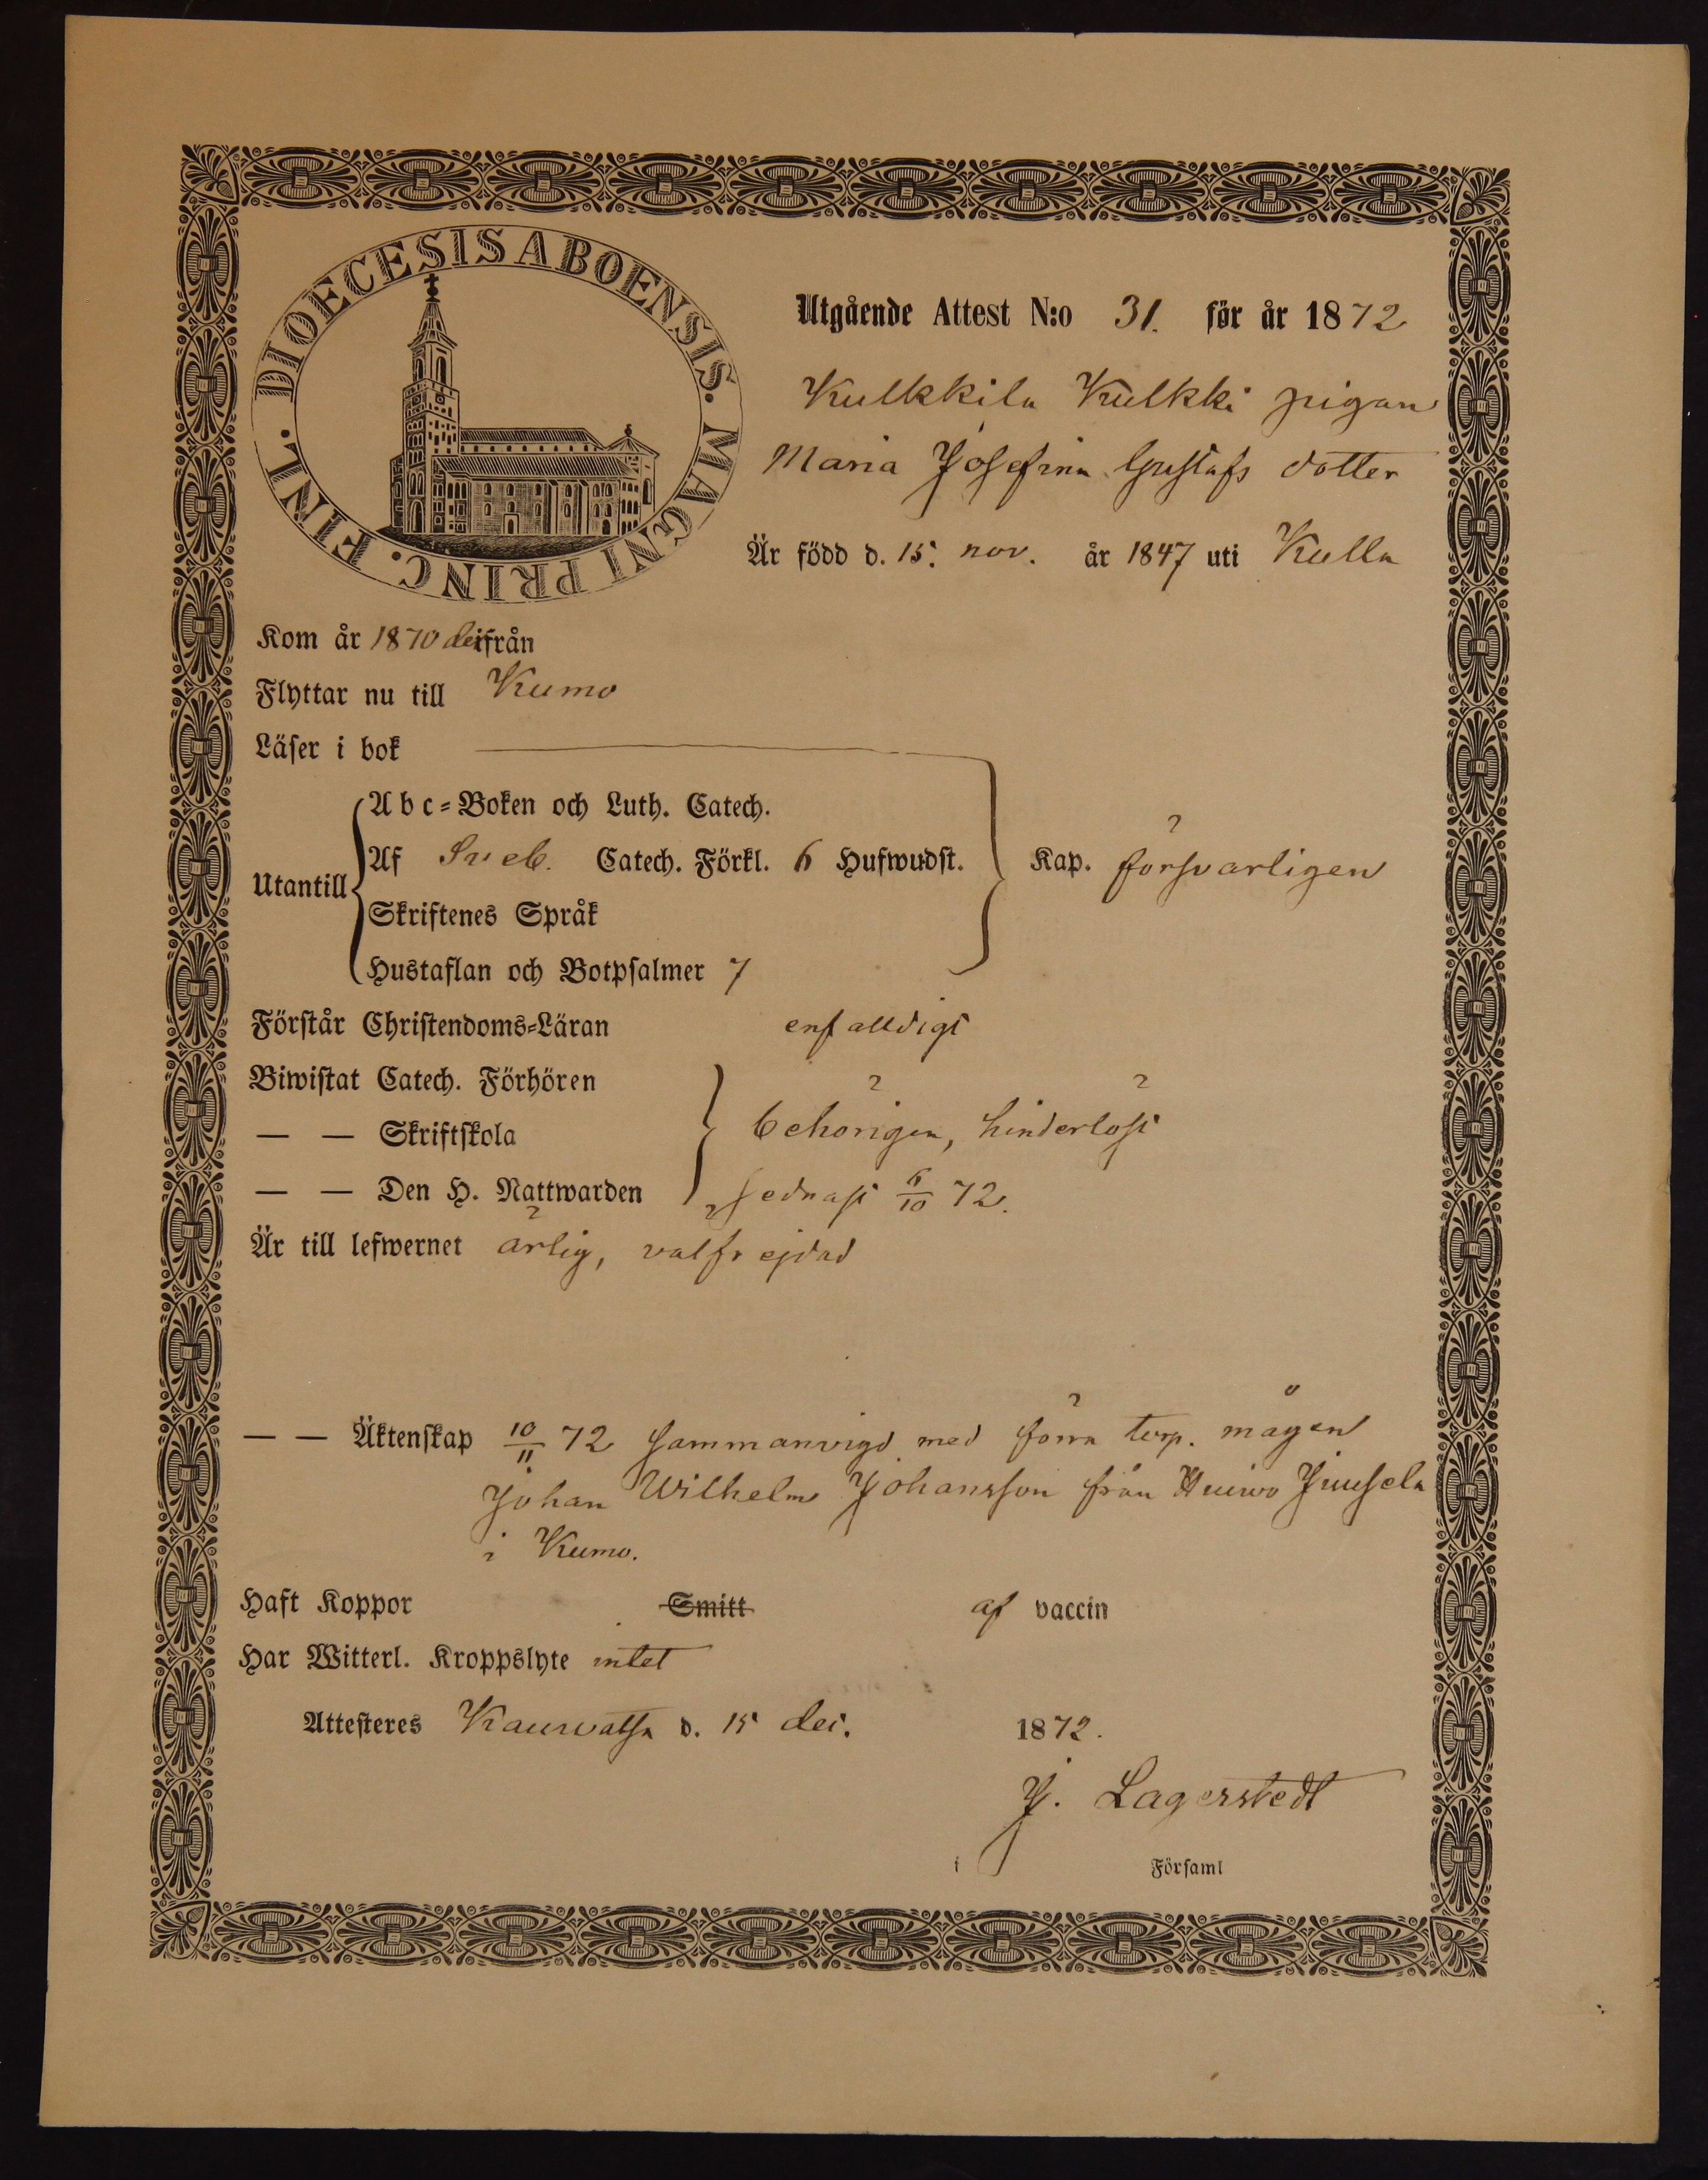 DIOECESIS ABOENSIS. MAGNI PRINC. FINL.
Utgående Attest N:o 31. för år 1872
Kulkkila Kulkki pigan
Maria Josefina Gustafs dotter
Är född d. 15. nov. år 1847 uti Kulla
Kom år 1870 deifrån
Flyttar nu till Kumo
Läser i bok
Utantill
Abc-Boken och Luth. Catech.
Af Sveb. Catech. Förkl. 6 Hufwudst.
Skriftenes Språk
Hustaflan och Botpsalmer 7
Kap. försvarligen
Förstår Christendoms-Läran enfalldigt
Biwistat Catech. Förhören
— — Skriftskola behörigen, hinderlöst
— — Den H. Nattwarden sednast 6/10 72.
Är till lefwernet ärlig, välfrejdad
— — Äktenskap 10/11 72 sammanvigd med förra torp. mågen
Johan Wilhelm Johansson från Juusela
i Kumo.
Haft Koppor Smitt af vaccin
Har Witterl. Kroppslyte intet
Attesteres Kauvatsa d. 15 dec. 1872.
J. Lagerstedt
i Församl